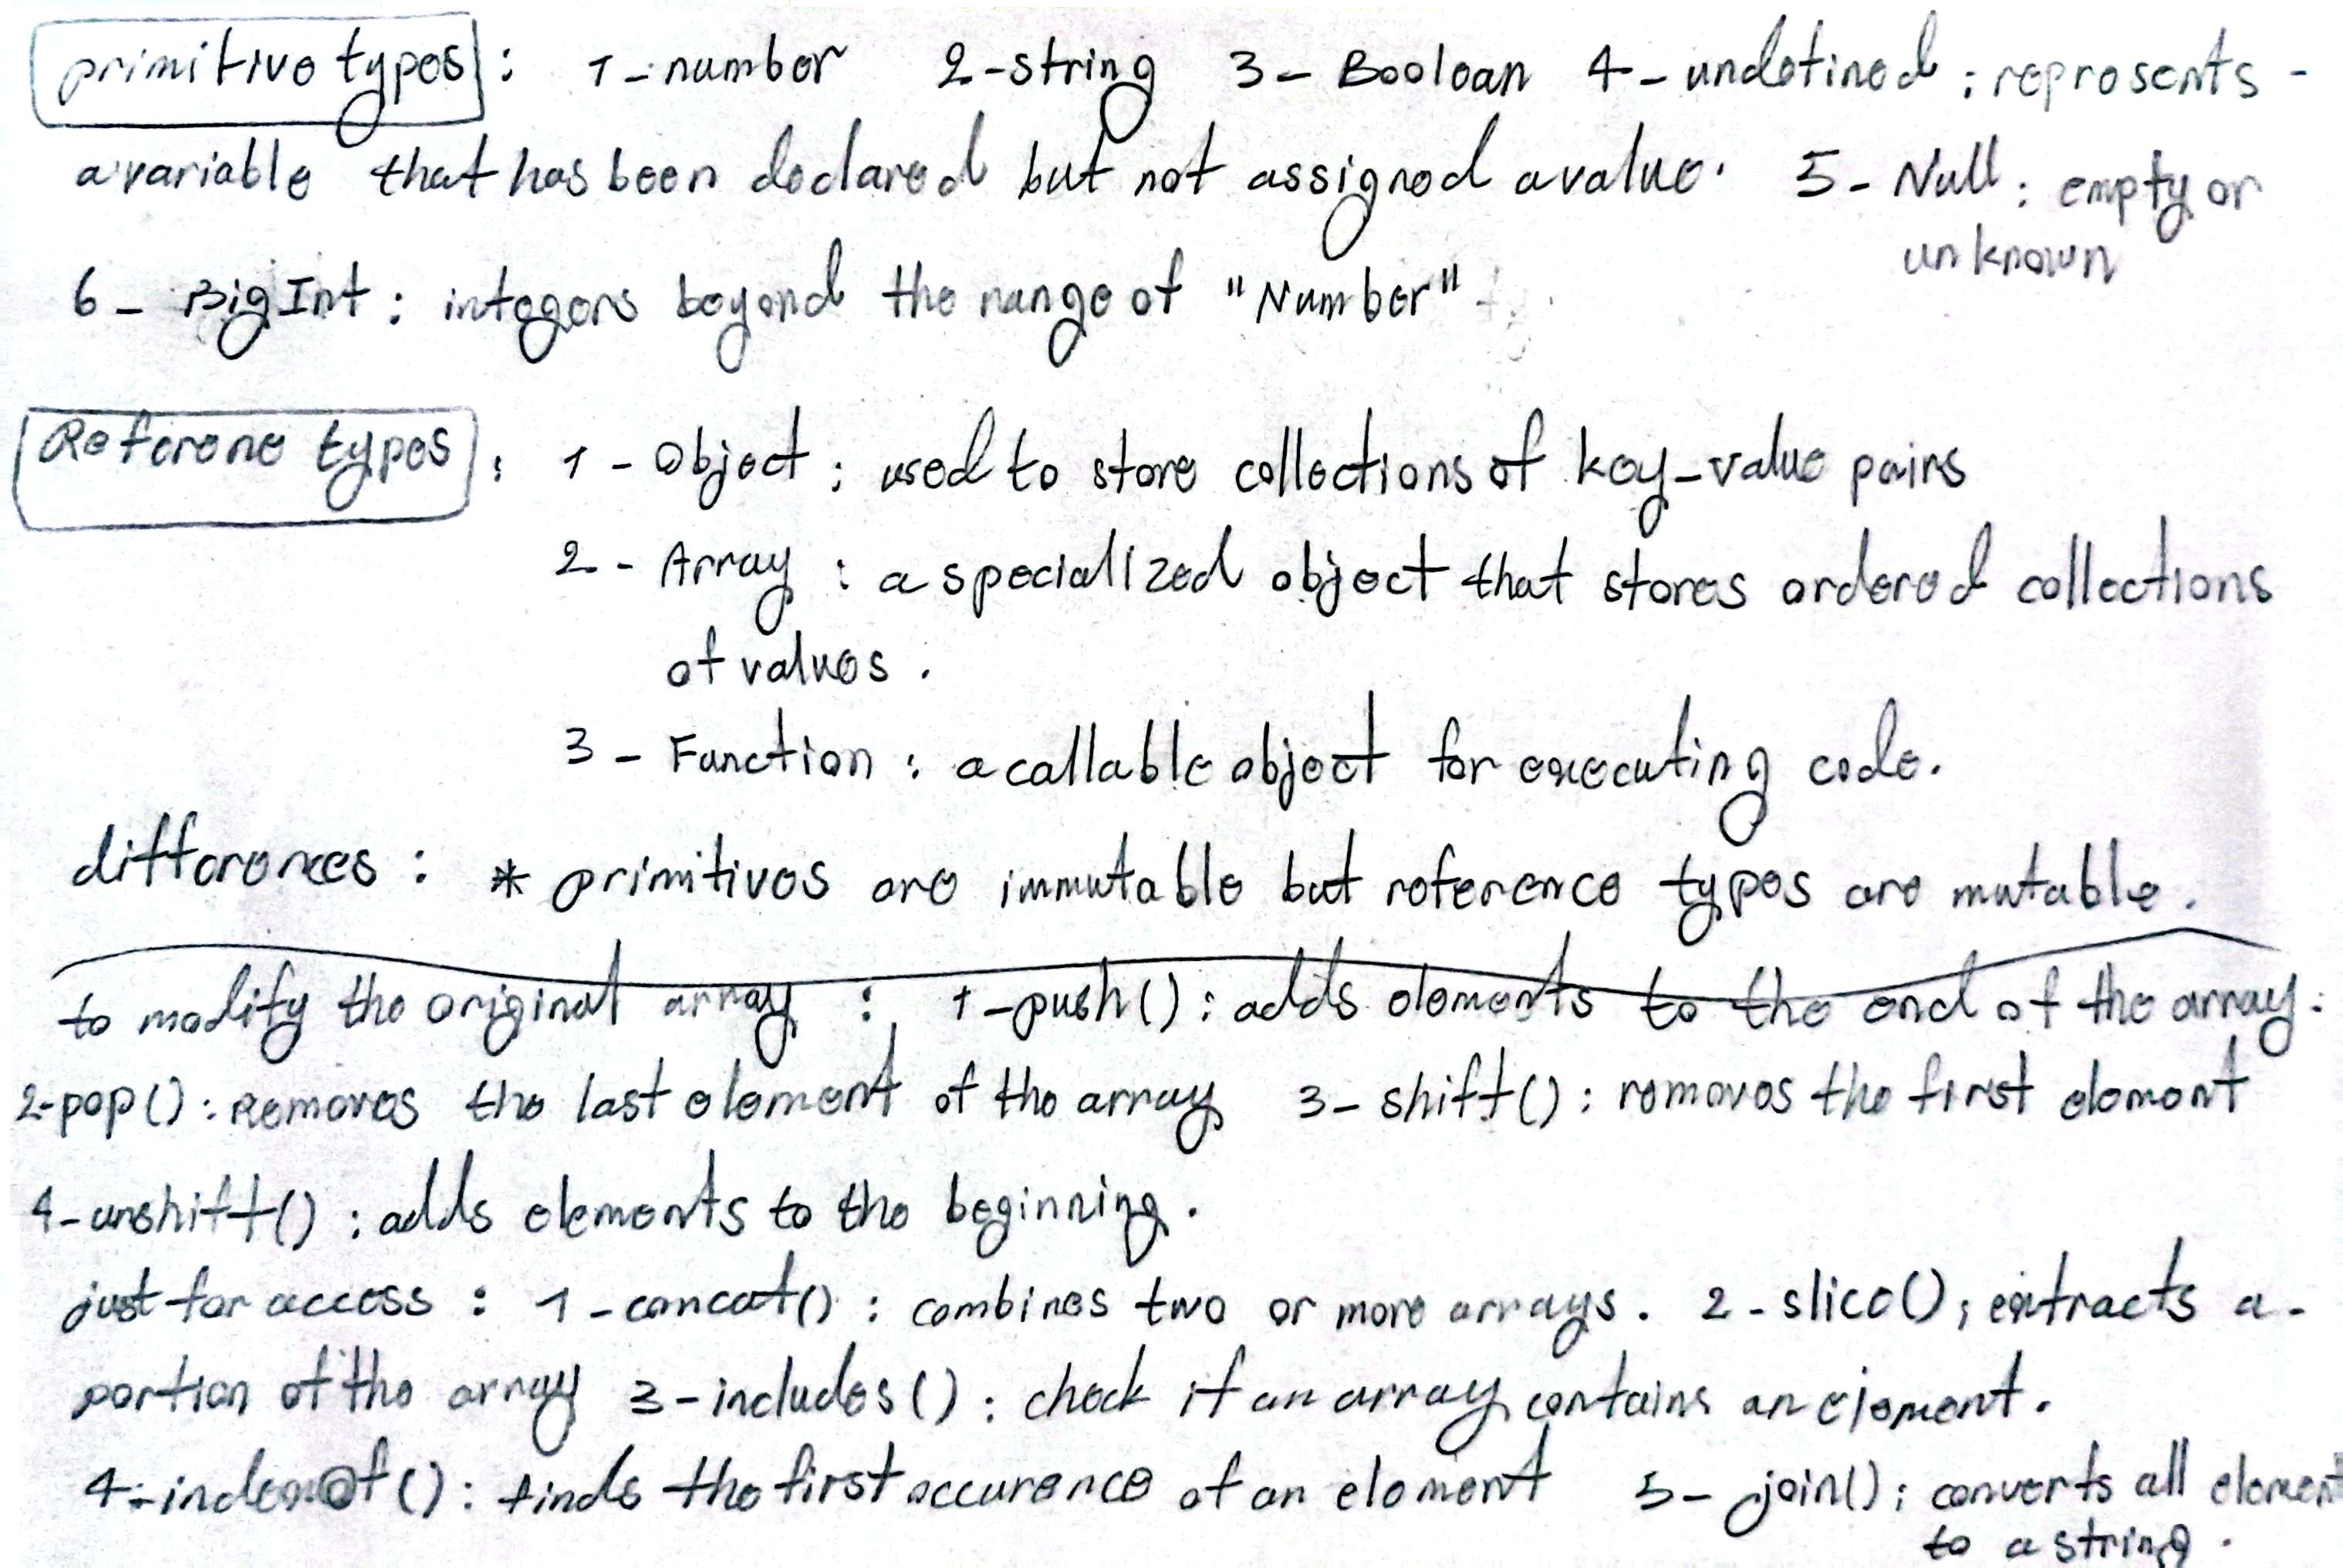 primitive types : 1 - number 2 - string 3 - Boolean 4 - undefined : represents -
a variable that has been declared but not assigned a value. 5 - Null : empty or
unknown
6 - BigInt : integers beyond the range of "Number"
Referene types : 1 - Object : used to store collections of key-value pairs
2 - Array : a specialized object that stores ordered collections
of values .
3 - Function : a callable object for executing code.
differences : * primitives are immutable but reference types are mutable .
to modify the original array : 1 - push() : adds elements to the end of the array.
2 - pop() : Removes the last element of the array 3 - shift() : removes the first element
4 - unshift() : adds elements to the beginning .
just for access : 1 - concat() : combines two or more arrays . 2 - slice() : extracts a -
portion of the array 3 - includes() : check if an array contains an element .
4 - indexOf() : finds the first occurence of an element 5 - join() : converts all element
to a string .